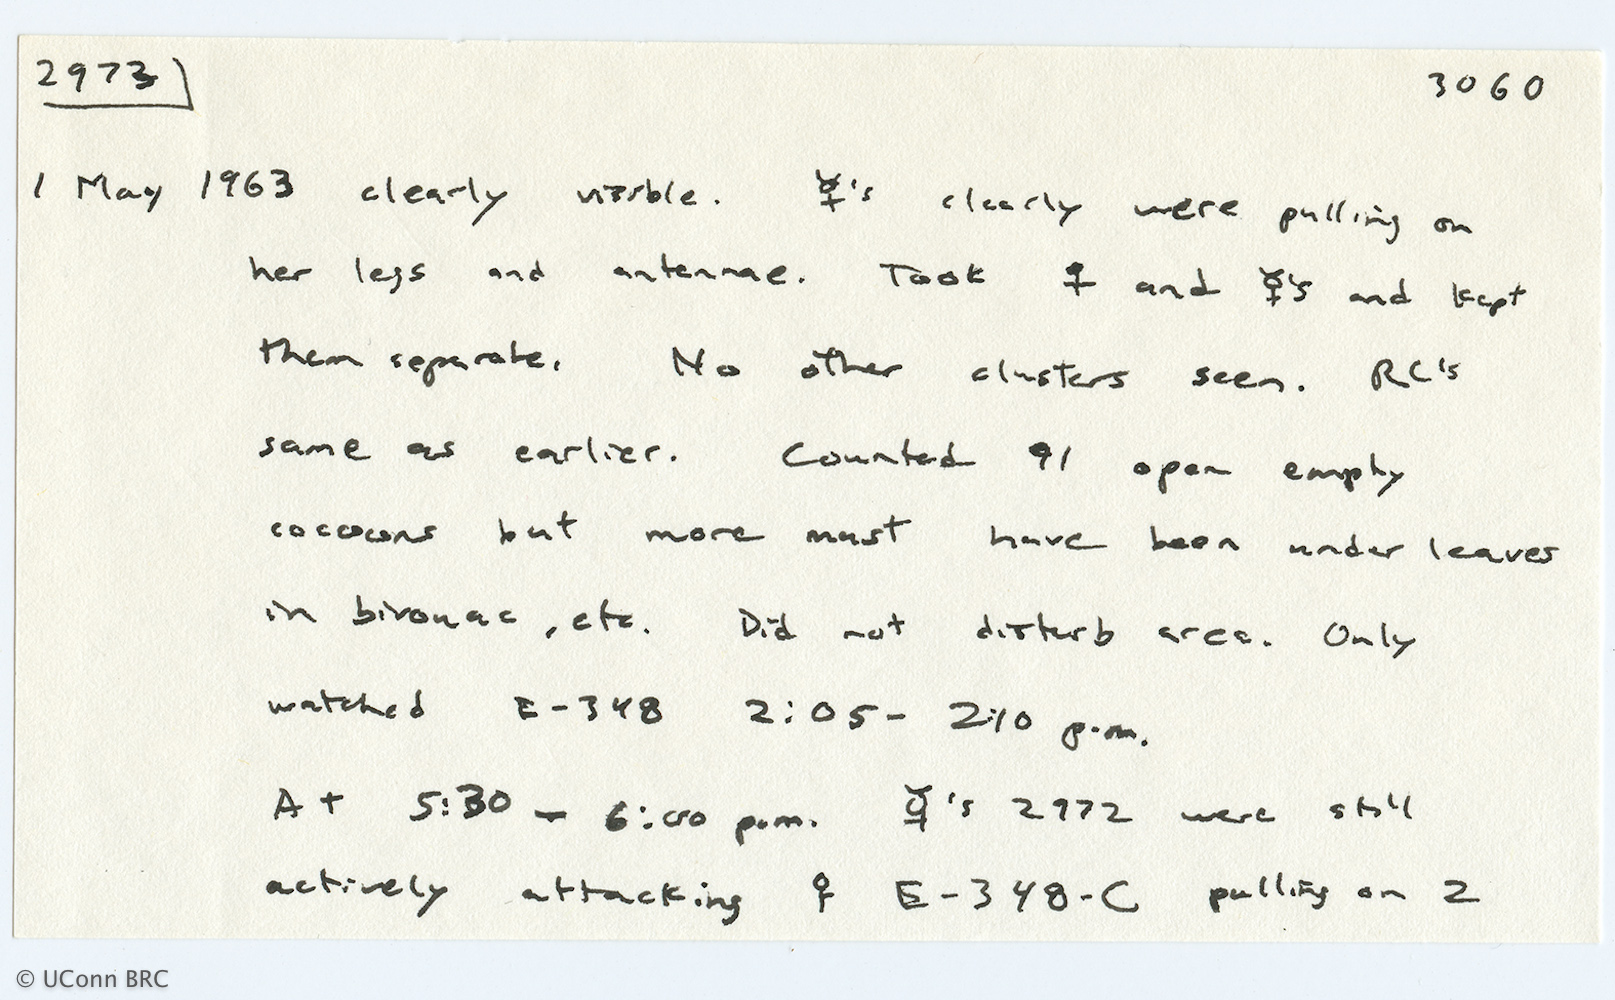 2973 3060
1 May 1963 clearly visible. ☿'s clearly were pulling on
her legs and antennae. Took ♀ and ☿'s and kept
them separate. No other clusters seen. RC's
same as earlier. Counted 91 open empty
cocoons but more must have been under leaves
in bivouac, etc. Did not disturb area. Only
watched E-348 2:05- 2:10 p.m.
At 5:30 - 6:00 p.m. ☿'s 2972 were still
actively attacking ♀ E-348-C pulling on 2
© UConn BRC